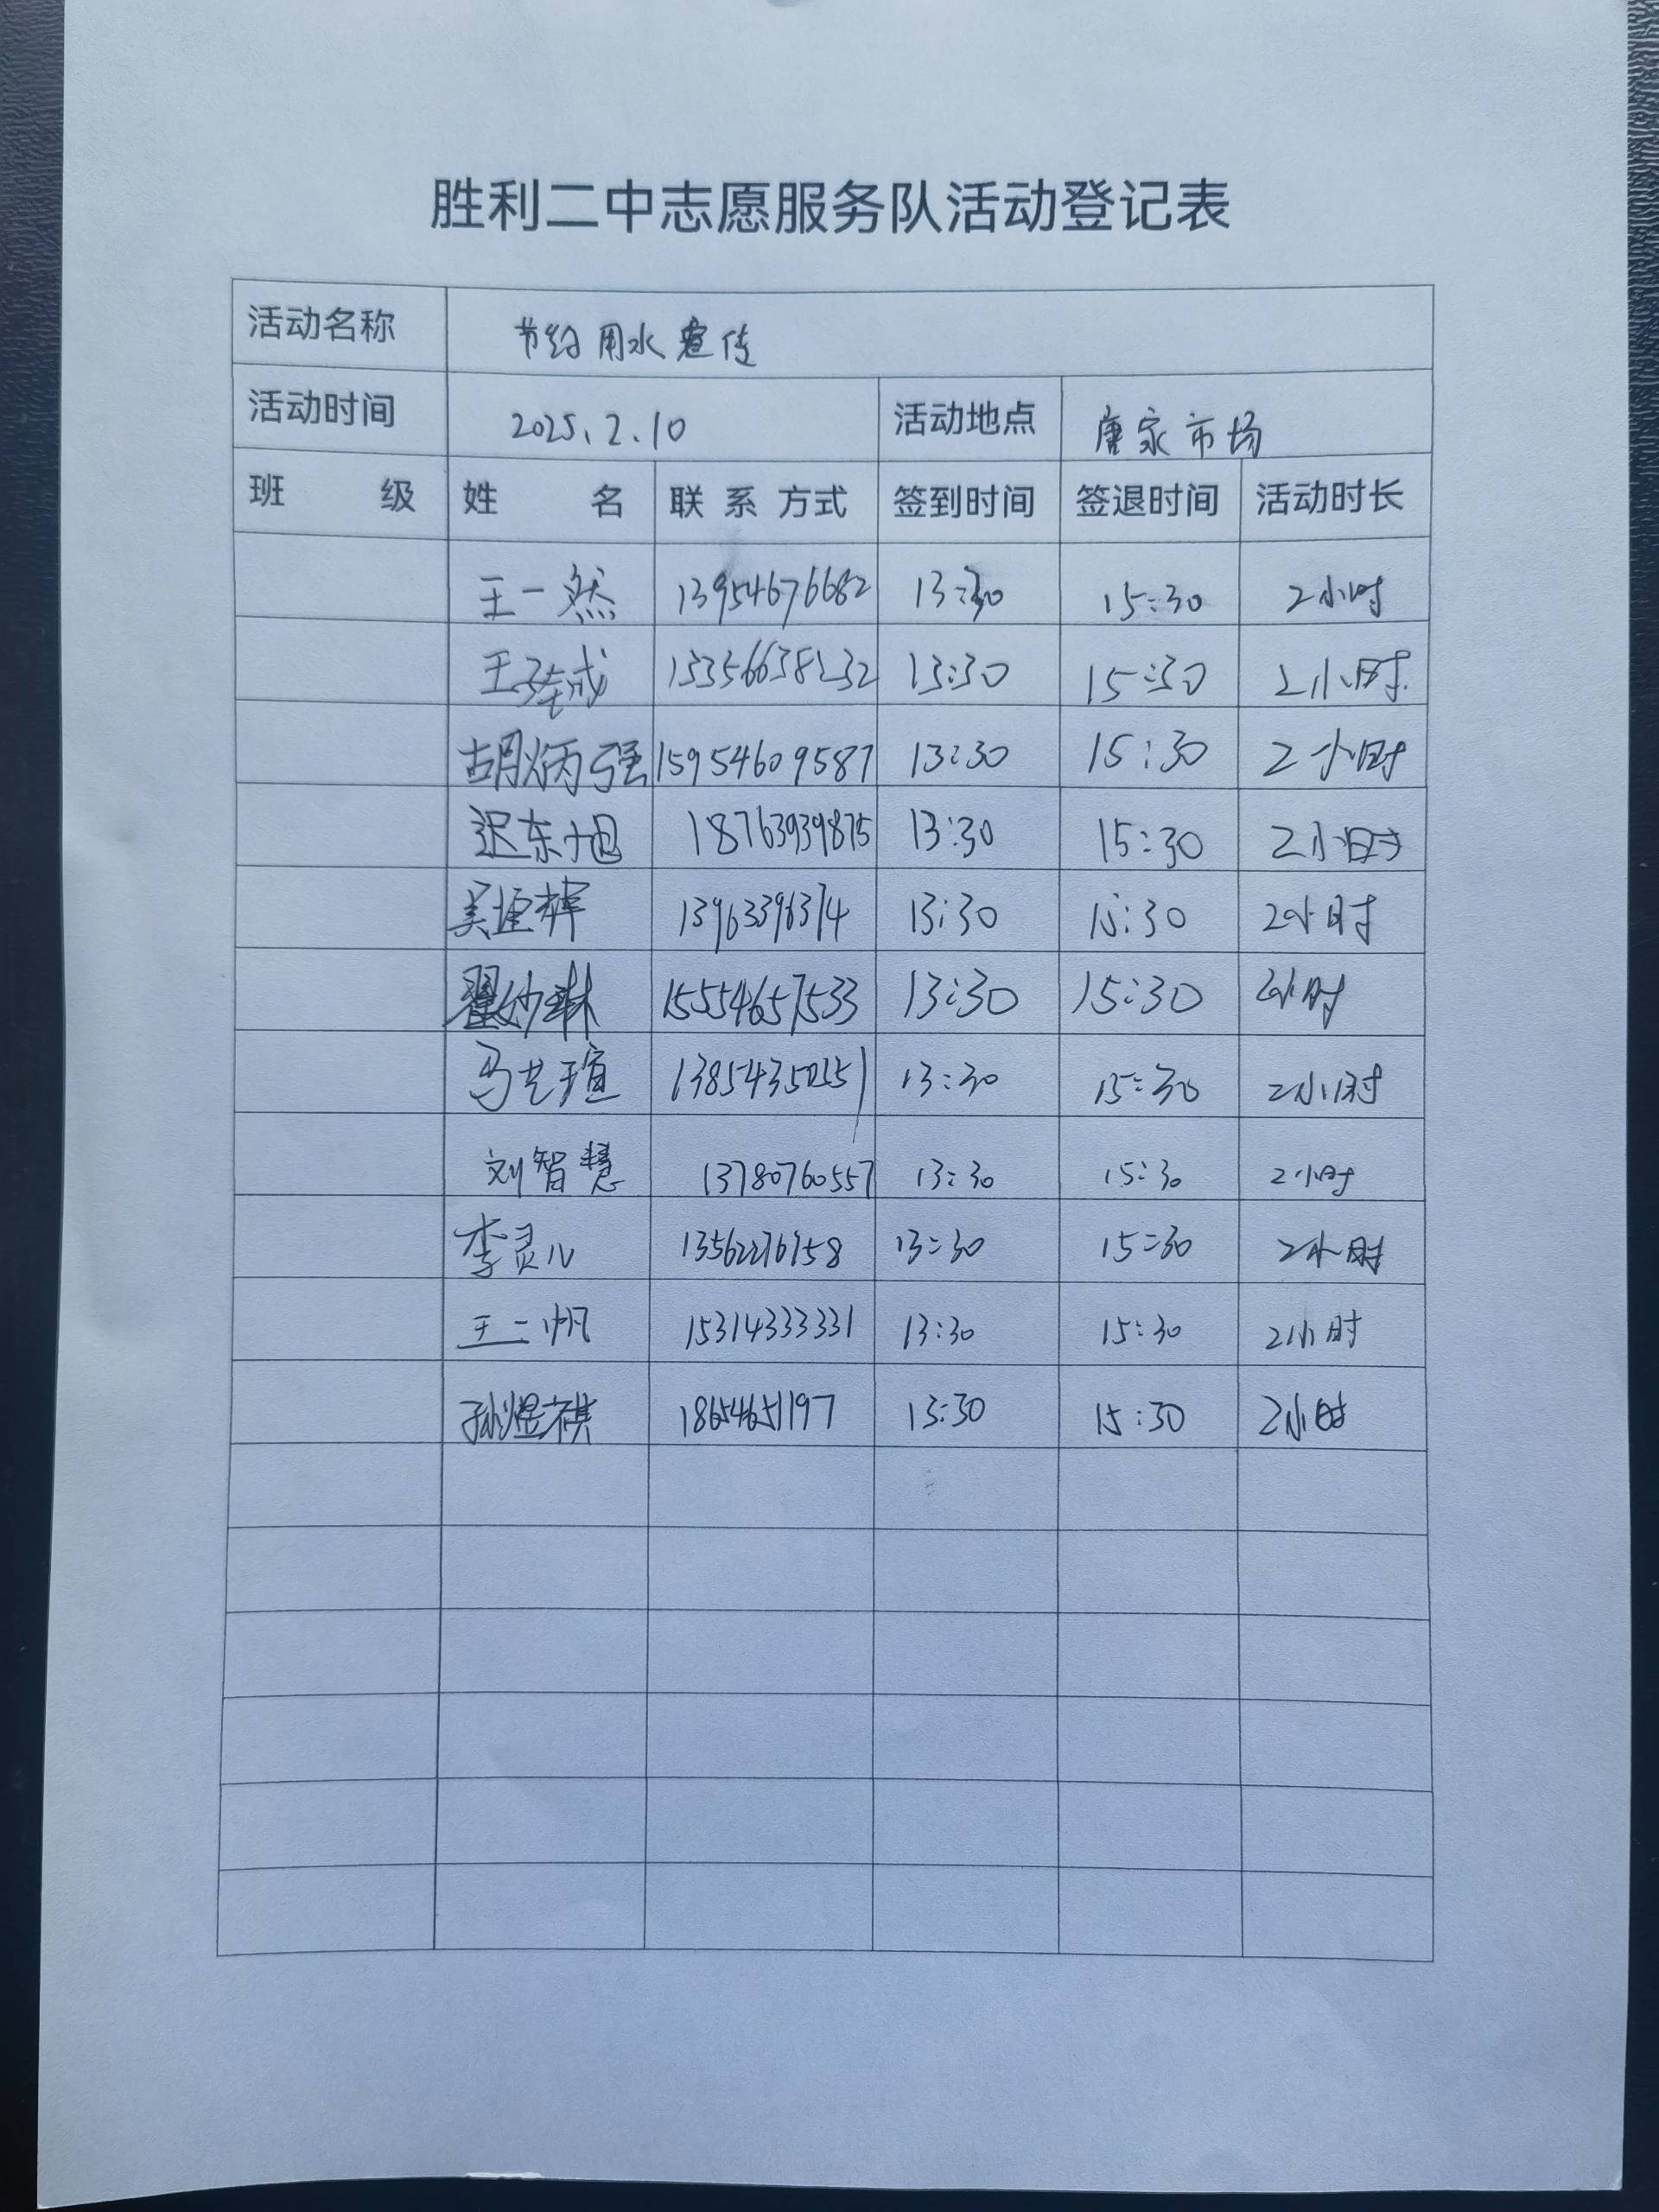 胜利二中志愿服务队活动登记表
活动名称 节约用水宣传
活动时间 2025.2.10 活动地点 唐家市场
班 级 姓 名 联系方式 签到时间 签退时间 活动时长
王一然 13954676682 13:30 15:30 2小时
13:30 15:30 2小时
胡炳强 15954609587 13:30 15:30 2小时
迟东旭 18763939875 13:30 15:30 2小时
13963396374 13:30 15:30 2小时
翟妙琳 15554657533 13:30 15:30 2小时
马艺瑄 13:30 15:30 2小时
刘智慧 13780760557 13:30 15:30 2小时
李灵儿 13:30 15:30 2小时
王二帆 15314333331 13:30 15:30 2小时
孙煜祺 18654651197 13:30 15:30 2小时